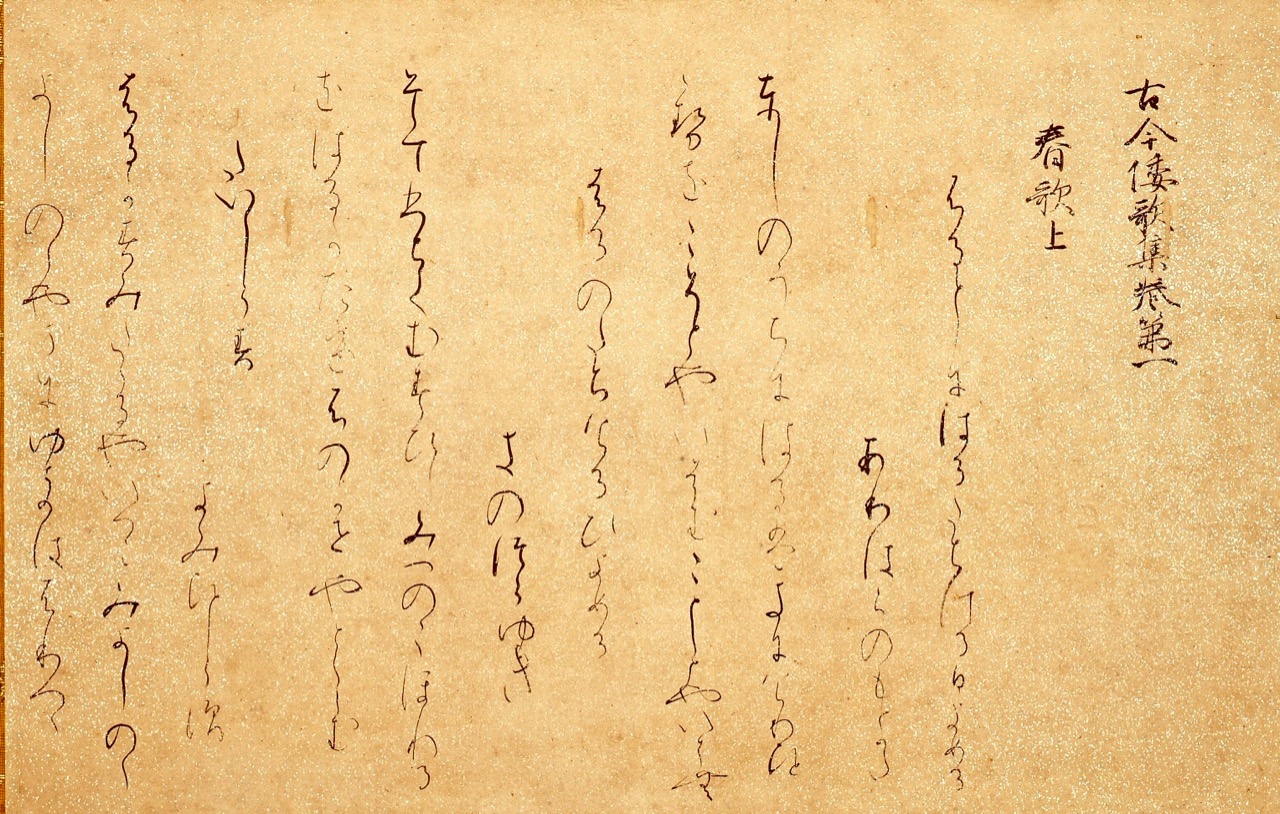 古今倭歌集巻第一
春歌上
ふるとしにはるたちける日よめる
ありはらのもとかた
としのうちにはるはきにけりひと
ゝせをこそとやいはむことしとやいはむ
はるのたちけるひよめる
きのつらゆき
そてひちてむすひしみつのこほれる
をはるかたつけふのかせやとくらむ
たいしらす
よみひとしらす
はるかすみたてるやいつこみよしのゝ
よしのゝやまにゆきはふりつゝ